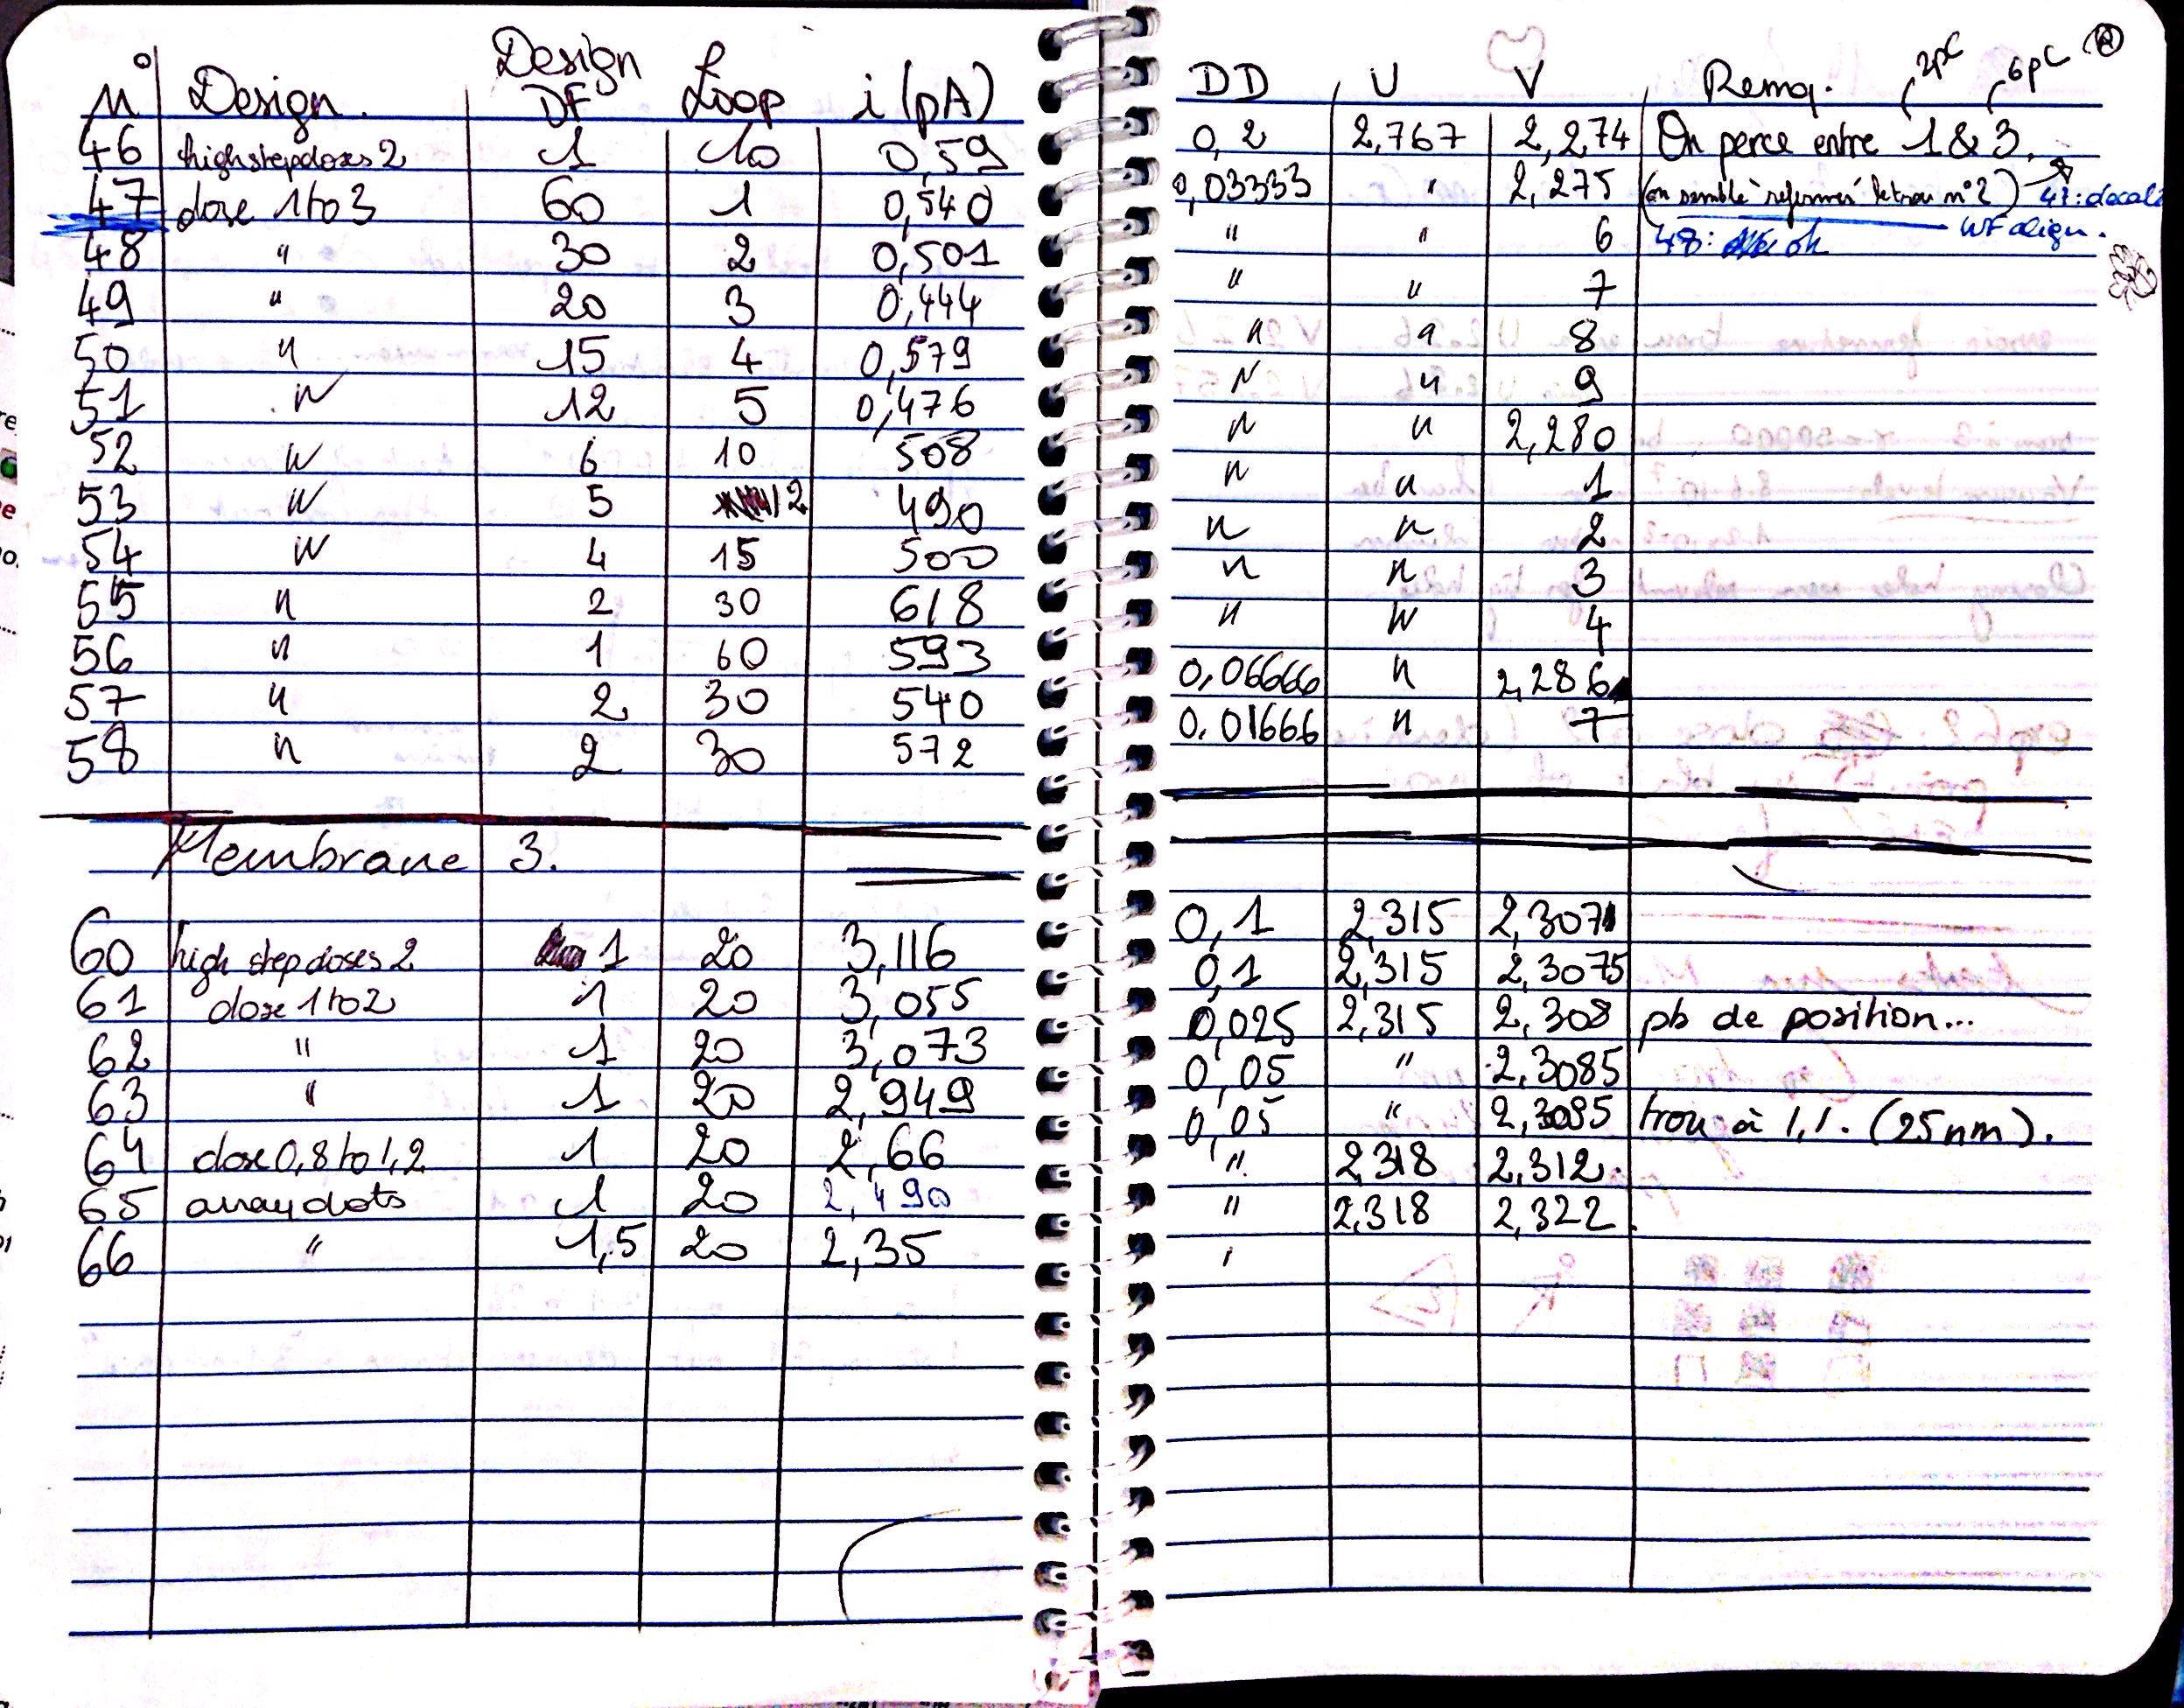 N° Design. Design DF Loop i (pA)
46 high step doses 2 1 10 0,59
47 dose 1 to 3 60 1 0,540
48 " 30 2 0,501
49 " 20 3 0,444
50 " 15 4 0,579
51 " 12 5 0,476
52 " 6 10 508
53 " 5 12 490
54 " 4 15 500
55 " 2 30 618
56 " 1 60 593
57 " 2 30 540
58 " 2 30 572
Membrane 3.
60 high step doses 2 1 20 3,116
61 dose 1 to 2 1 20 3,055
62 " 1 20 3,073
63 " 1 20 2,949
64 dose 0,8 to 1,2 1 20 2,66
65 array dots 1 20 2,490
66 " 1,5 20 2,35
DD U V Remq. 2pC 6pC
0,2 2,767 2,274 On perce entre 1 & 3.
0,03333 " 2,275 (on semble "refermer" le trou n°2) 47: decalé
" " 6 48: ok WF align.
" " 7
" " 8
" " 9
" " 2,280
" " 1
" " 2
" " 3
" " 4
0,06666 " 2,286
0,01666 " 7
0,1 2,315 2,3071
0,1 2,315 2,3075
0,025 2,315 2,308 pb de position...
0,05 " 2,3085
0,05 " 2,3085 trou à 1,1. (25nm).
" 2,318 2,312.
" 2,318 2,322.
"